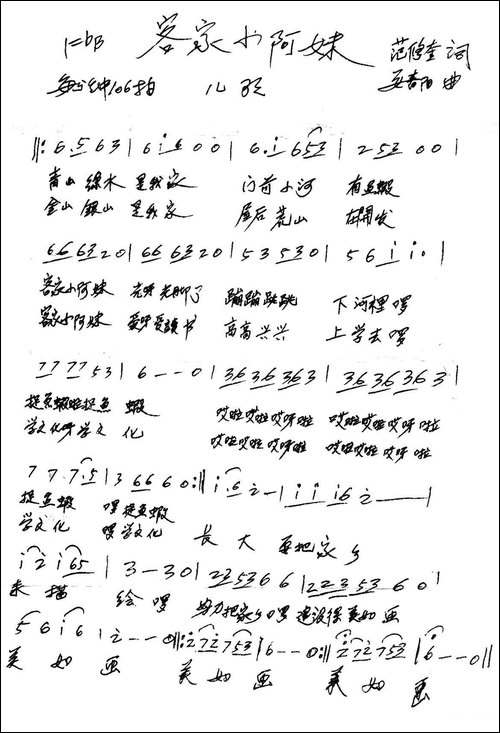 1=bB 客家小阿妹 范修奎 词
每分钟106拍 儿歌 曲
‖: 6·5 6 3 | 6 i 6 0 0 | 6· i 6 5 3 | 2 5 3 0 0 |
青山 绿水 是我家 门前小河 有鱼虾
金山 银山 是我家 屋后荒山 在開发
6 6 6 3 2 0 | 6 6 6 3 2 0 | 5 3 5 3 0 | 5 6 i i 0 |
客家小阿妹 光呀光脚丫 蹦蹦跳跳 下河裡啰
客家小阿妹 爱呀爱讀书 高高兴兴 上学去啰
7 7 7 7 5 3 | 6 - - 0 | 3 6 3 6 3 6 3 | 3 6 3 6 3 6 3 |
捉鱼蝦啦捉鱼 蝦 哎啦哎啦哎呀啦 哎啦哎啦哎呀啦
学文化呀学文 化 哎啦哎啦哎呀啦 哎啦哎啦哎呀啦
7 7 7· 5 | 3 6 6 6 0 :‖ i· 6 2 - | i i i 6 2 - - |
捉鱼蝦 啰捉鱼蝦
学文化 啰学文化 長大 要把家乡
i 2 i 6 5 | 3 - 3 0 | 2 2 5 3 6 6 | 2 2 3 5 3 6 0 |
来描 绘啰 努力把家乡啰 建设得美如画
5 6 i 6 | 2 - - 0 :‖: 2 7 2 7 5 3 | 6 - - 0 :‖ 2 7 2 7 5 3 | 6 - - 0 ‖
美如画 美如画 美如画